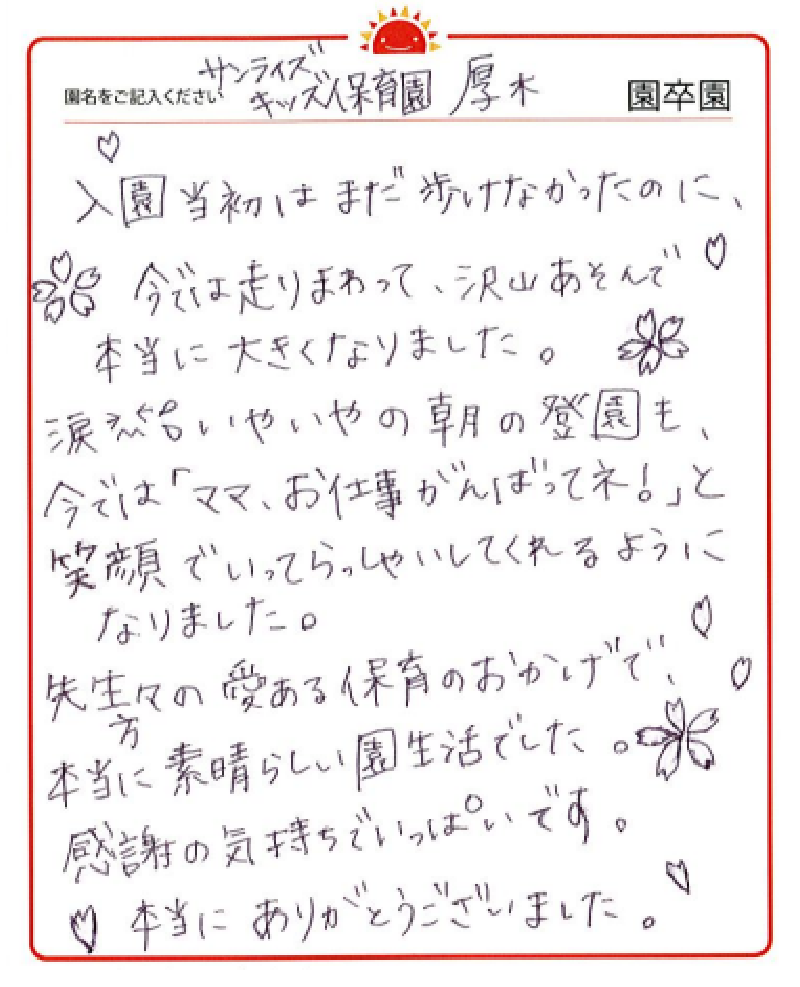 サンライズ
園名をご記入ください キッズ保育園 厚木 園卒園
入園当初は まだ 歩けなかったのに、
今では走りまわって、沢山あそんで
本当に 大きくなりました。
涙 いやいやの 朝の 登園も、
今では「ママ、お仕事がんばってネ!」と
笑顔でいってらっしゃいしてくれるように
なりました。
先生々の 愛ある保育のおかげで、
方
本当に 素晴らしい 園生活でした。
感謝の気持ちでいっぱいです。
本当に ありがとうございました。